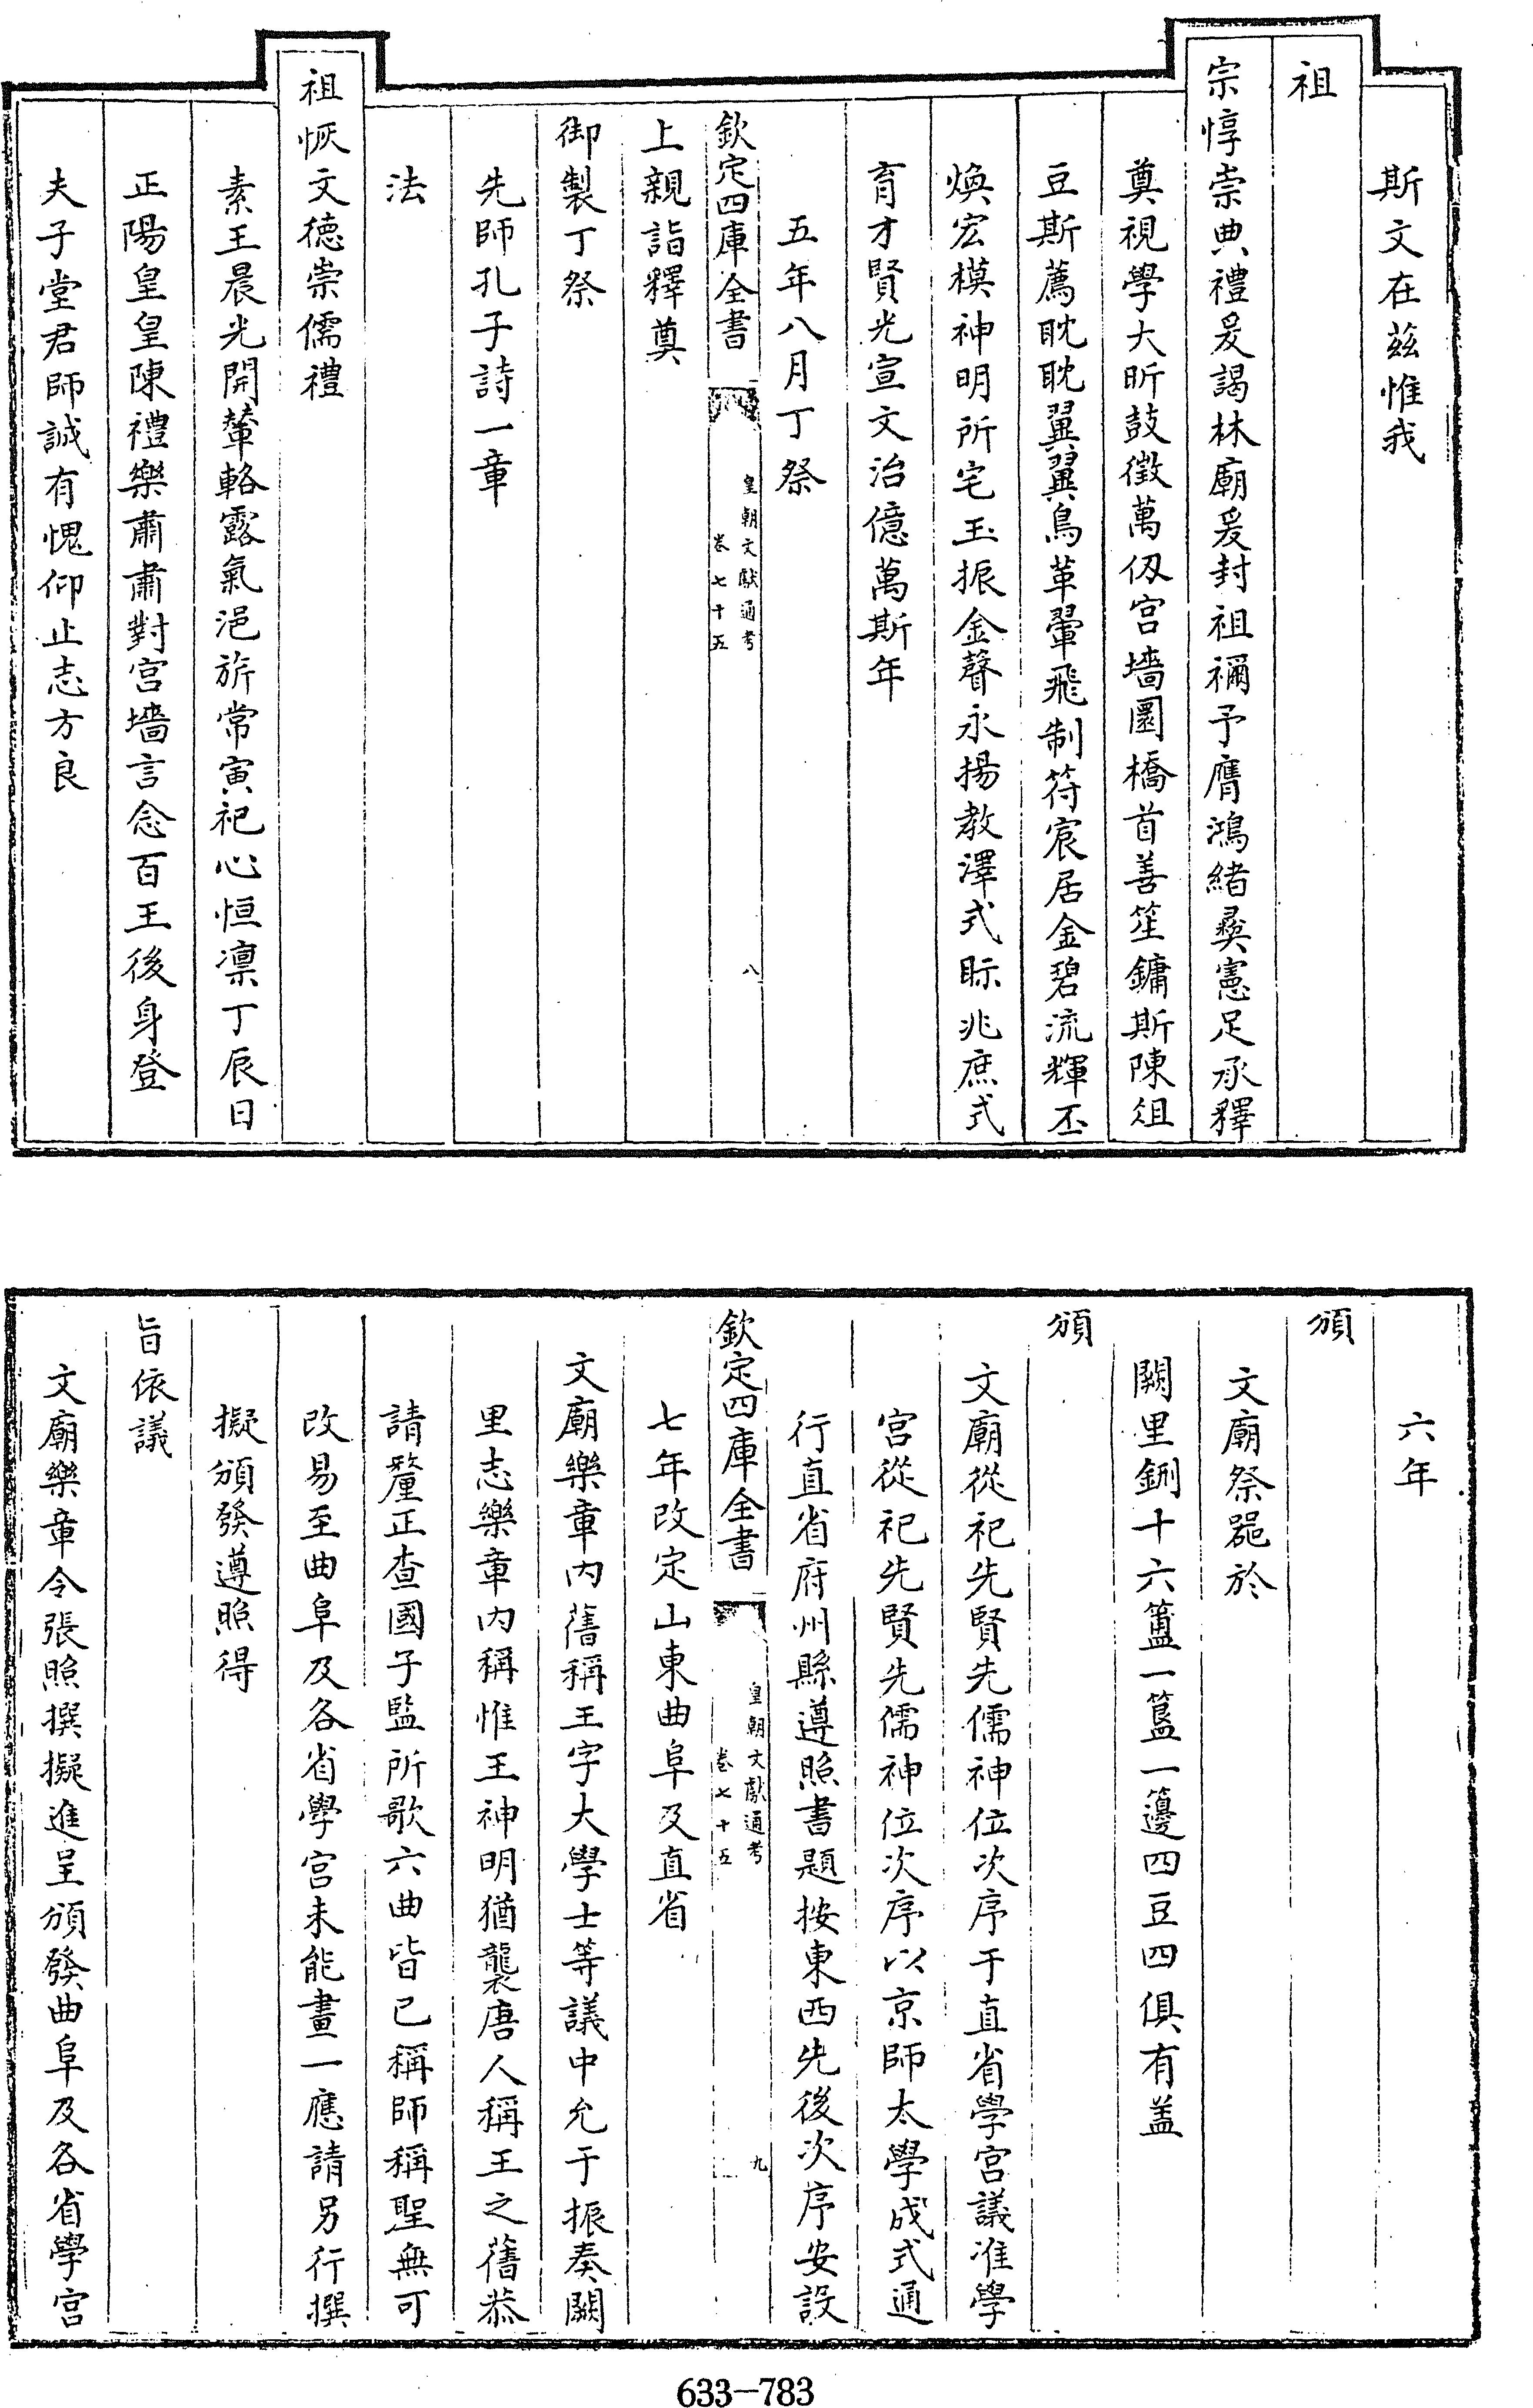 斯文在茲惟我
祖
宗惇崇典禮爰謁林廟爰封祖禰予膺鴻緒彞憲足承釋
奠視學大昕鼓徵萬仭宫墻圜橋首善笙鏞斯陳俎
豆斯薦眈眈翼翼鳥革翬飛制符宸居金碧流輝丕
煥宏模神明所宅玉振金聲永揚教澤式眎兆庶式
育才賢光宣文治億萬斯年
五年八月丁祭
欽定四庫全書
皇朝文獻通考
卷七十五
八
上親詣釋奠
御製丁祭
先師孔子詩一章
法
祖恢文德崇儒禮
素王晨光開輦輅露氣浥旂常寅祀心恒凛丁辰日
正陽皇皇陳禮樂肅肅對宫墻言念百王後身登
夫子堂君師誠有愧仰止志方良
六年
頒
文廟祭噐於
闕里鉶十六簠一簋一籩四豆四俱有盖
頒
文廟從祀先賢先儒神位次序于直省學宫議准學
宫從祀先賢先儒神位次序以京師太學成式通
行直省府州縣遵照書題按東西先後次序安設
欽定四庫全書
皇朝文獻通考
卷七十五
九
七年改定山東曲阜及直省
文廟樂章内舊稱王字大學士等議中允于振奏闕
里志樂章内稱惟王神明猶襲唐人稱王之舊恭
請釐正查國子監所歌六曲皆已稱師稱聖無可
改易至曲阜及各省學宫未能畫一應請另行撰
擬頒發遵照得
旨依議
文廟樂章令張照撰擬進呈頒發曲阜及各省學宫
633-783